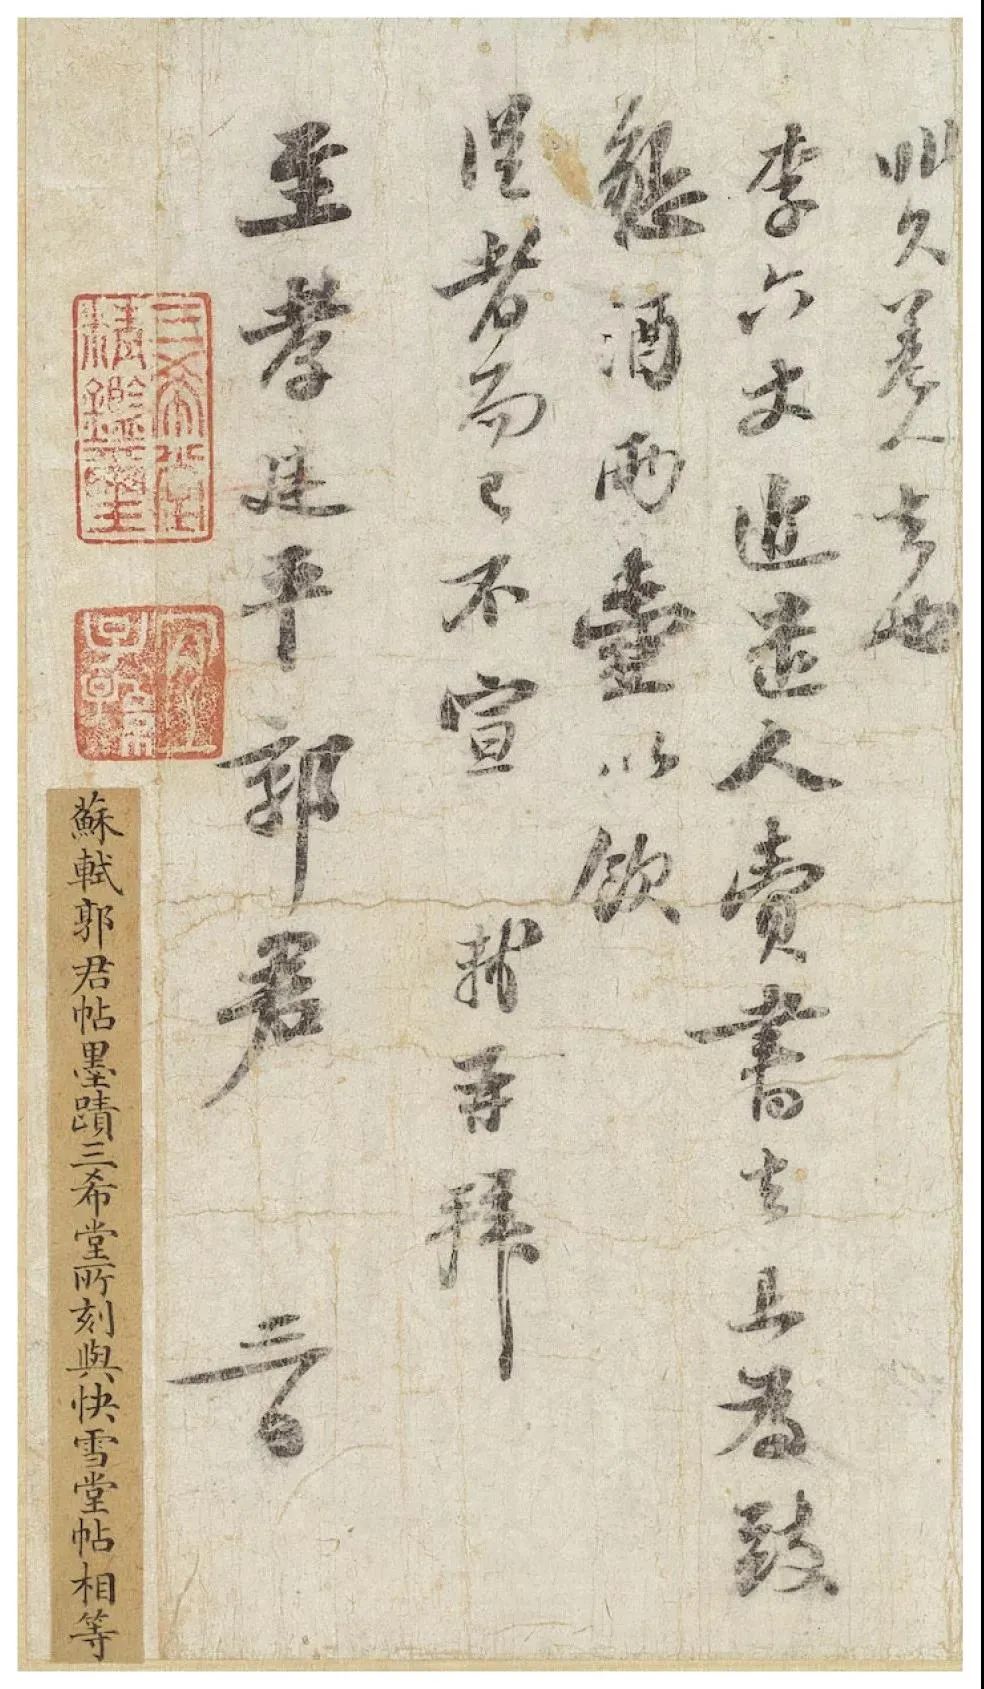 久差人去也
李六丈近遣人賷書去且為致
懇酒兩壺以飲
從者而已不宣 軾再拜
至孝廷平郭君 三日
三希堂
精鑑璽
宜
子孫
蘇軾郭君帖墨蹟三希堂所刻與快雪堂帖相等